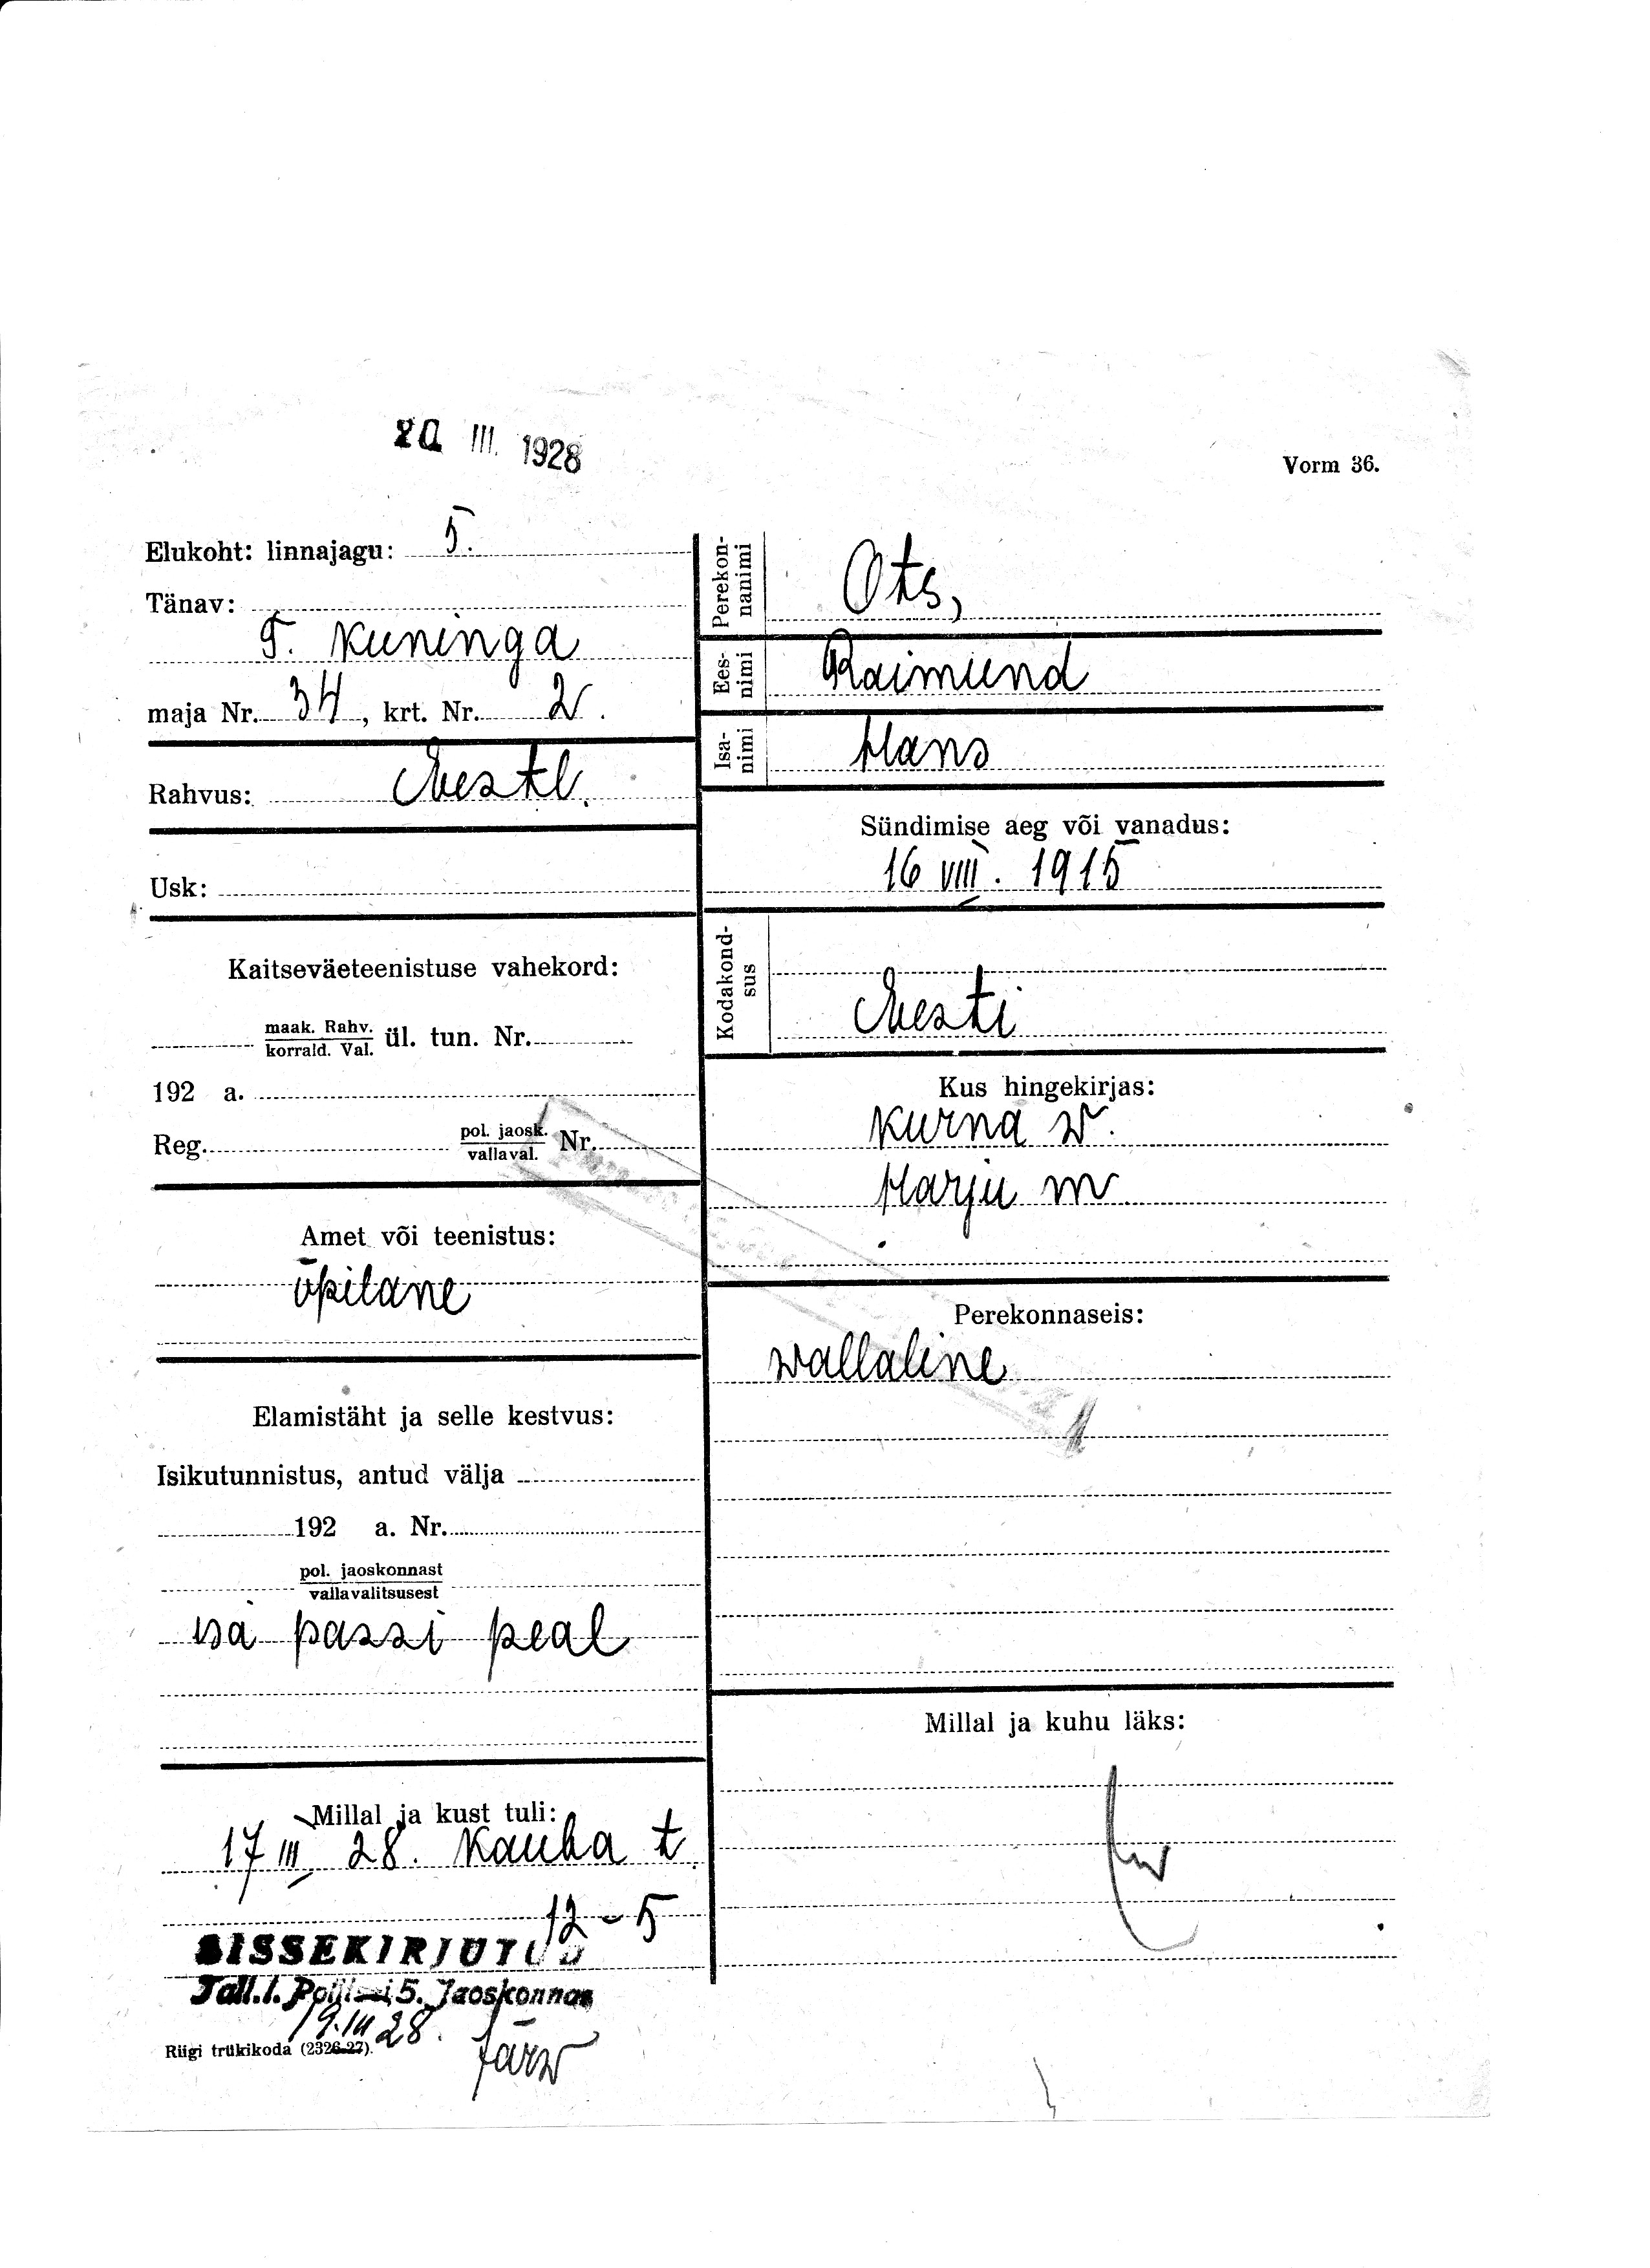 20 III. 1928
Vorm 36.
Elukoht: linnajagu: 5.
Tänav:
T. Kuninga
maja Nr. 34, krt. Nr. 2.
Rahvus: Eestl.
Usk:
Kaitseväeteenistuse vahekord:
maak. Rahv.
korrald. Val.
ül. tun. Nr.
192 a.
Reg. pol. jaosk. Nr.
vallaval.
Amet või teenistus:
õpilane
Elamistäht ja selle kestvus:
Isikutunnistus, antud välja
192 a. Nr.
pol. jaoskonnast
vallavalitsusest
isa passi peal
Millal ja kust tuli:
17 III 28. Kauba t.
12-5
SISSEKIRJUTUD
Tall. l. Politsei 5. Jaoskonnas
19.III 28.
Riigi trükikoda (2326-27).
Järw
Perekon-
nanimi
Ots,
Ees-
nimi
Raimund
Isa-
nimi
Hans
Sündimise aeg või vanadus:
16 VIII. 1915
Kodakond-
sus
Eesti
Kus hingekirjas:
Kurna w.
Harju m
Perekonnaseis:
wallaline
Millal ja kuhu läks: